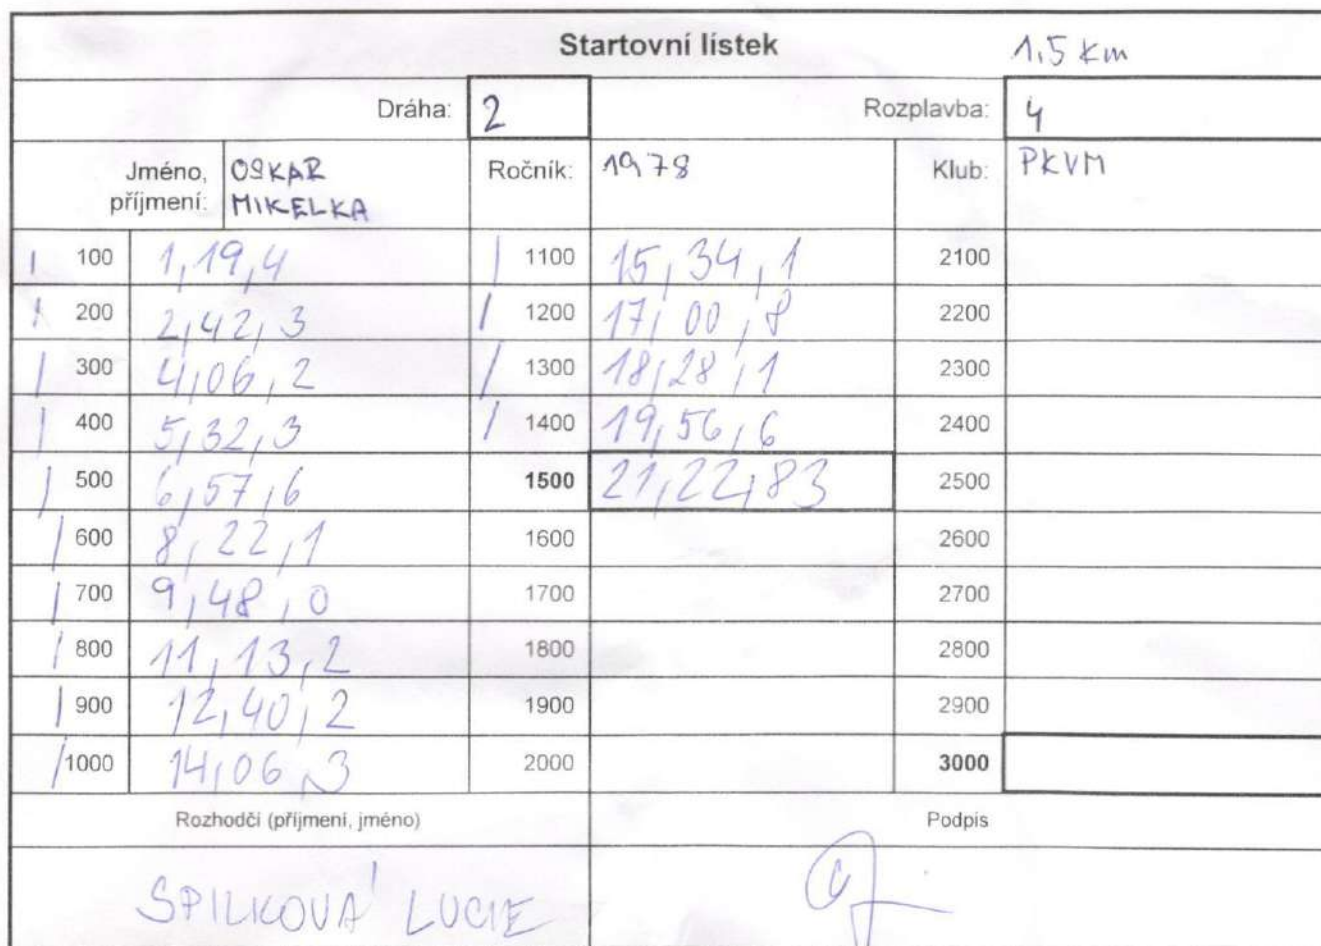 Startovní lístek 1,5 km
Dráha: 2 Rozplavba: 4
Jméno, příjmení: OSKAR MIKELKA Ročník: 1978 Klub: PKVM
100 1,19,4 1100 15,34,1 2100
200 2,42,3 1200 17,00,8 2200
300 4,06,2 1300 18,28,1 2300
400 5,32,3 1400 19,56,6 2400
500 6,57,6 1500 21,22,83 2500
600 8,22,1 1600 2600
700 9,48,0 1700 2700
800 11,13,2 1800 2800
900 12,40,2 1900 2900
1000 14,06,3 2000 3000
Rozhodčí (příjmení, jméno) Podpis
SPILKOVÁ LUCIE